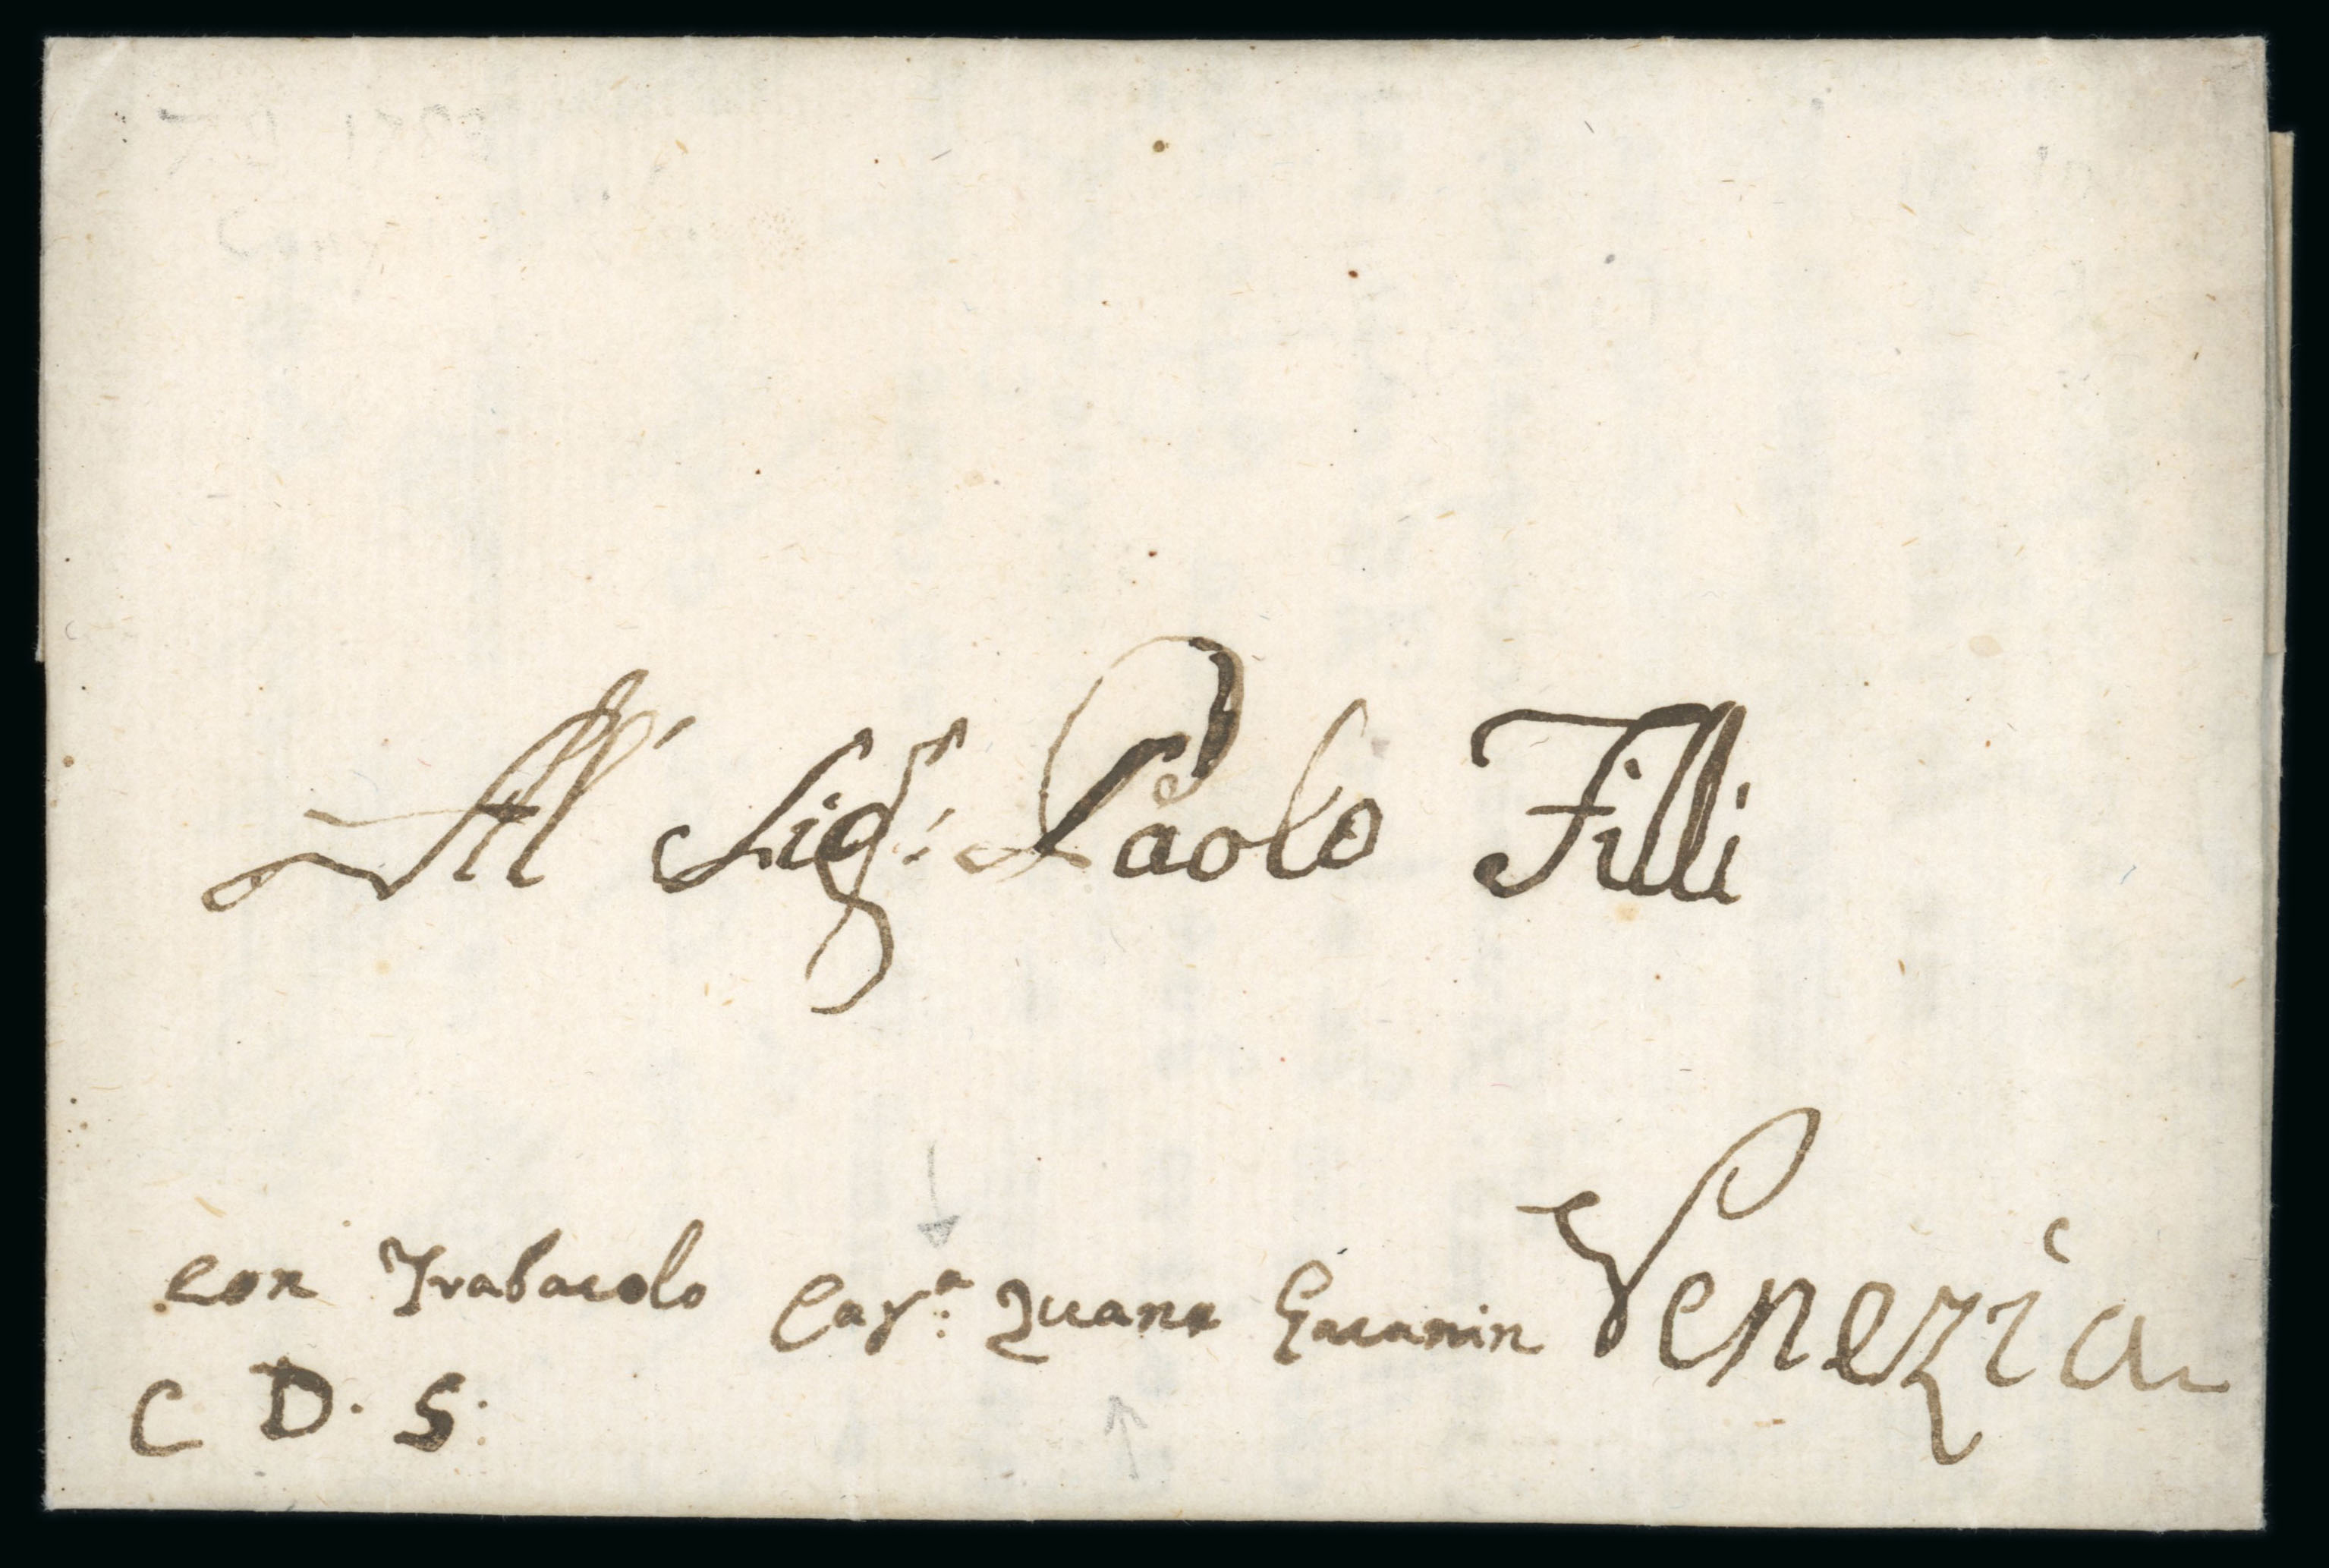 Al Sig.r Paolo Filli
Venezia
con Trabacolo Cap.n Zuane
C D. S.